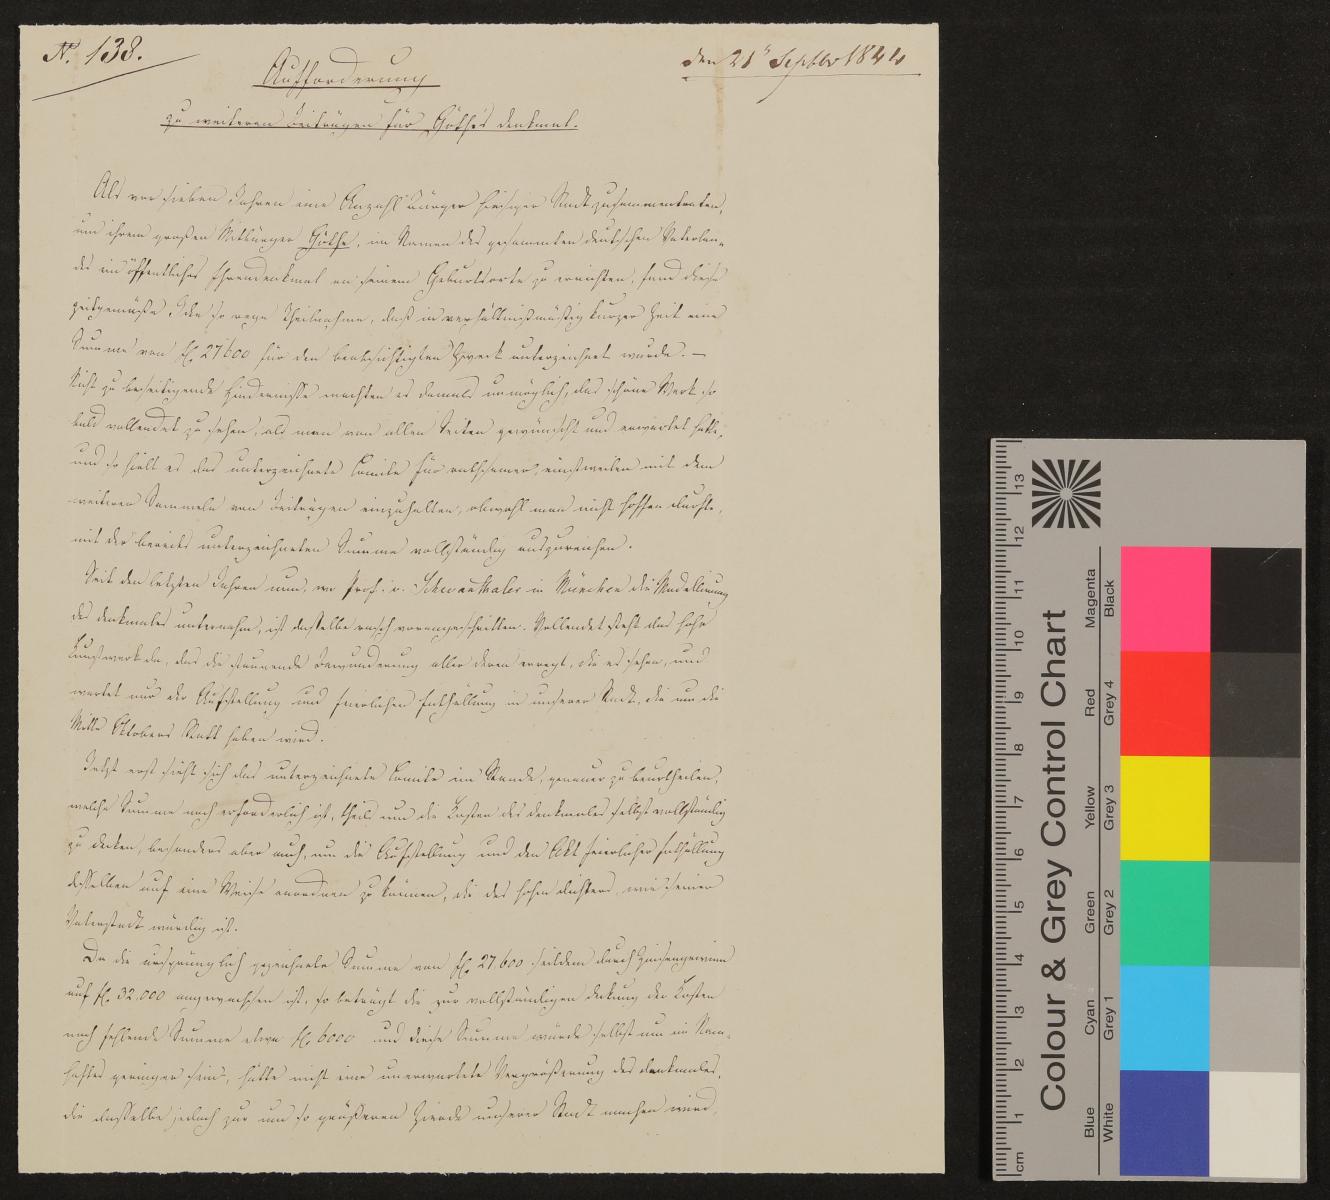 N. 138.
den 21n Septber 1844
Aufforderung
zu weiteren Beiträgen für Göthe's Denkmal.
Als vor sieben Jahren eine Anzahl Bürger hiesiger Stadt zusammentraten,
um ihrem großen Mitbürger Göthe, im Namen des gesammten deutschen Vaterlan-
des ein öffentliches Ehrendenkmal an seinem Geburtsorte zu errichten, fand diese
zeitgemäße Idee so rege Theilnahme, daß in verhältnißmäßig kurzer Zeit eine
Summe von fl. 27600 für den beabsichtigten Zweck unterzeichnet wurde. —
Nicht zu beseitigende Hindernisse machten es damals unmöglich, das schöne Werk so
bald vollendet zu sehen, als man von allen Seiten gewünscht und erwartet hatte,
und so hielt es das unterzeichnete Comite für rathsamer, einstweilen mit dem
weiteren Sammeln von Beiträgen einzuhalten, obwohl man nicht hoffen durfte,
mit der bereits unterzeichneten Summe vollständig auszureichen.
Seit den letzten Jahren nun, wo Prof. v. Schwanthaler in München die Modellirung
des Denkmales unternahm, ist dasselbe rasch vorangeschritten. Vollendet steht das hohe
Kunstwerk da, das die staunende Bewunderung aller deren erregt, die es sehen, und
wartet nur der Aufstellung und feierlichen Enthüllung in unserer Stadt, die um die
Mitte Oktobers Statt haben wird.
Jetzt erst sieht sich das unterzeichnete Comite im Stande, genauer zu beurtheilen,
welche Summe noch erforderlich ist, theils um die Kosten des Denkmales selbst vollständig
zu decken, besonders aber auch, um die Aufstellung und den Akt feierlicher Enthüllung
desselben auf eine Weise anordnen zu können, die des hohen Dichters, wie seiner
Vaterstadt würdig ist.
Da die ursprünglich gezeichnete Summe von fl. 27.600 seitdem durch Zinsengewinn
auf fl. 32.000 angewachsen ist, so beträgt die zur vollständigen Deckung der Kosten
noch fehlende Summe etwa fl. 6000 und diese Summe würde selbst um ein Nam-
haftes geringer sein, hätte nicht eine unerwartete Vergrößerung des Denkmales,
die dasselbe jedoch zur um so größeren Zierde unserer Stadt machen wird,
cm 1 2 3 4 5 6 7 8 9 10 11 12 13
Colour & Grey Control Chart
Blue Cyan Green Yellow Red Magenta
White Grey 1 Grey 2 Grey 3 Grey 4 Black